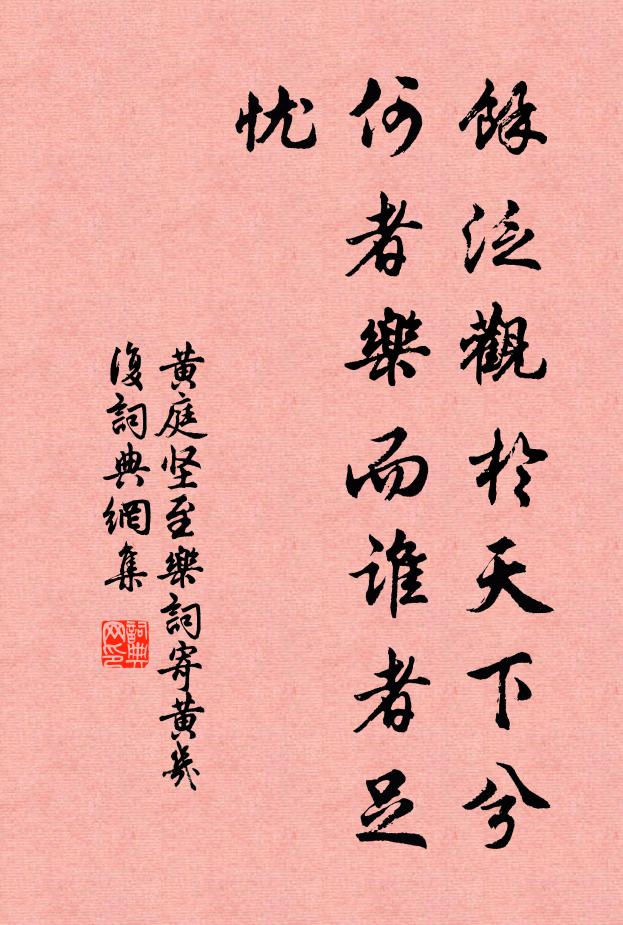 餘泛觀於天下兮
何者樂而誰者足
忧
黄庭坚至樂詞寄黄幾
復詞典網集
詞典
网印